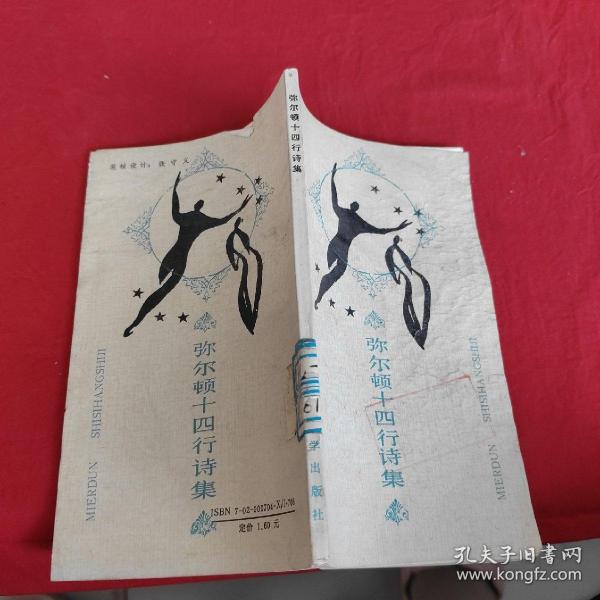 装帧设计：张守义
弥尔顿十四行诗集
MIERDUN SHISIHANGSHIJI
ISBN 7-02-000704-X/I·705
定价 1.60 元
弥尔顿十四行诗集
学出版社
弥尔顿十四行诗集
MIERDUN SHISIHANGSHIJI
孔夫子旧书网
www.kongfz.com